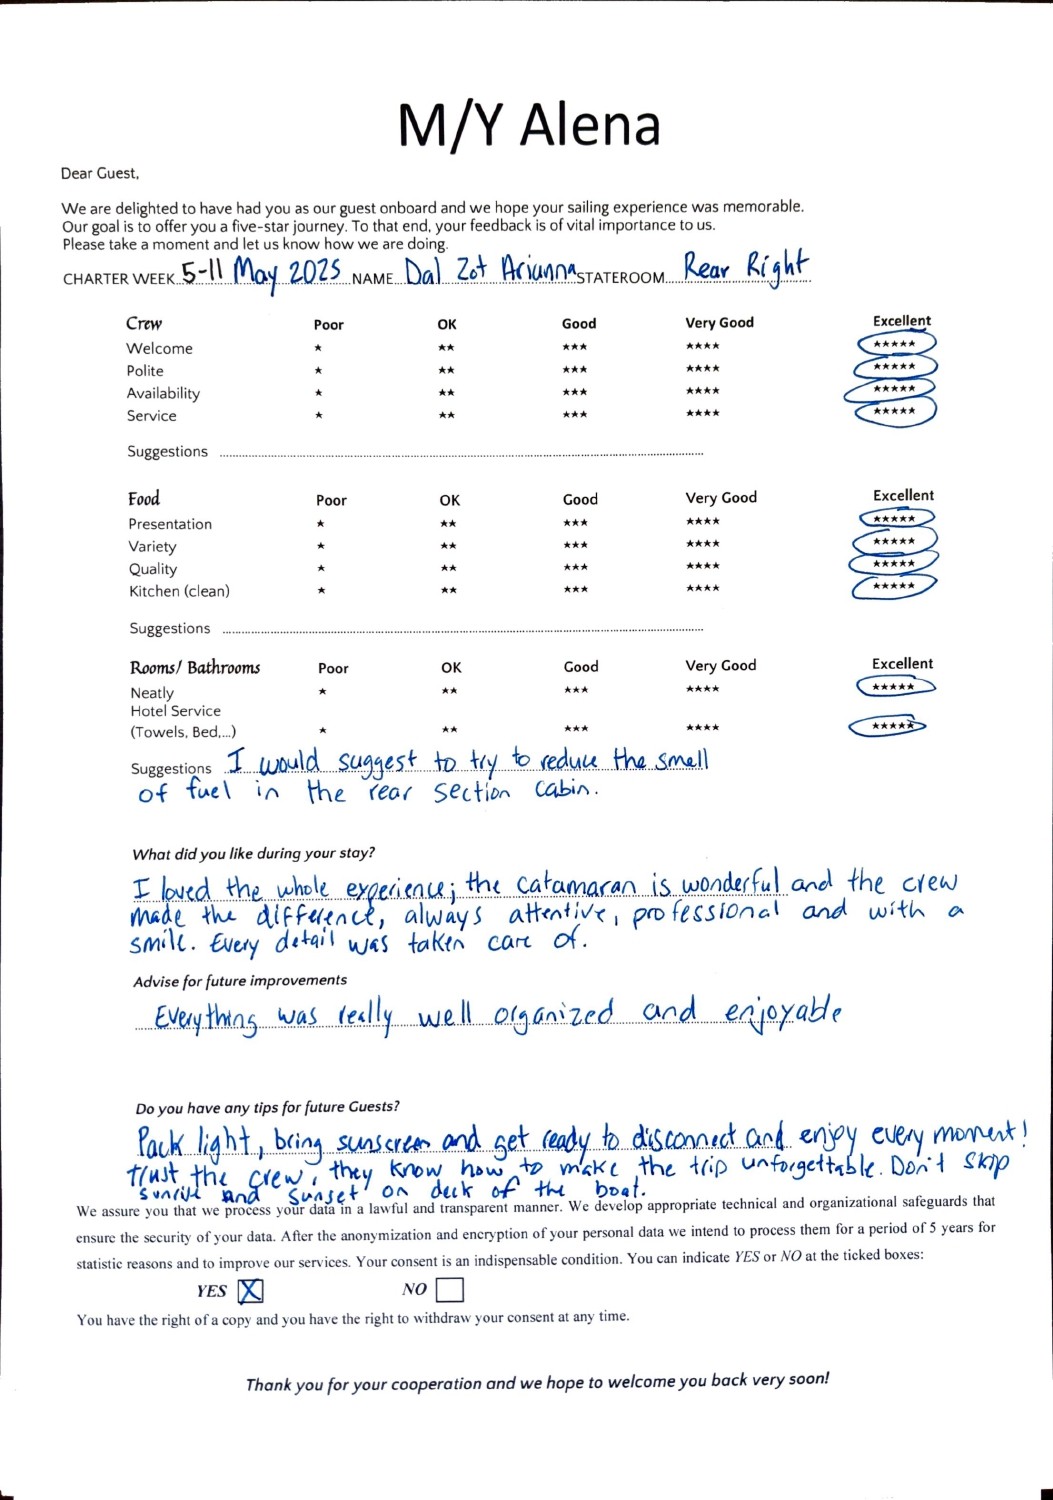 M/Y Alena
Dear Guest,
We are delighted to have had you as our guest onboard and we hope your sailing experience was memorable.
Our goal is to offer you a five-star journey. To that end, your feedback is of vital importance to us.
Please take a moment and let us know how we are doing.
CHARTER WEEK 5-11 May 2025 NAME Dal Zot Arianna STATEROOM Rear Right
Crew Poor OK Good Very Good Excellent
Welcome ★ ★★ ★★★ ★★★★ ★★★★★
Polite ★ ★★ ★★★ ★★★★ ★★★★★
Availability ★ ★★ ★★★ ★★★★ ★★★★★
Service ★ ★★ ★★★ ★★★★ ★★★★★
Suggestions
Food Poor OK Good Very Good Excellent
Presentation ★ ★★ ★★★ ★★★★ ★★★★★
Variety ★ ★★ ★★★ ★★★★ ★★★★★
Quality ★ ★★ ★★★ ★★★★ ★★★★★
Kitchen (clean) ★ ★★ ★★★ ★★★★ ★★★★★
Suggestions
Rooms/ Bathrooms Poor OK Good Very Good Excellent
Neatly ★ ★★ ★★★ ★★★★ ★★★★★
Hotel Service
(Towels, Bed,...) ★ ★★ ★★★ ★★★★ ★★★★★
Suggestions I would suggest to try to reduce the smell
of fuel in the rear section cabin.
What did you like during your stay?
I loved the whole experience; the catamaran is wonderful and the crew
made the difference, always attentive, professional and with a
smile. Every detail was taken care of.
Advise for future improvements
Everything was really well organized and enjoyable
Do you have any tips for future Guests?
Pack light, bring sunscreen and get ready to disconnect and enjoy every moment!
Trust the crew, they know how to make the trip unforgettable. Don't skip
sunrise and sunset on deck of the boat.
We assure you that we process your data in a lawful and transparent manner. We develop appropriate technical and organizational safeguards that
ensure the security of your data. After the anonymization and encryption of your personal data we intend to process them for a period of 5 years for
statistic reasons and to improve our services. Your consent is an indispensable condition. You can indicate YES or NO at the ticked boxes:
YES X NO
You have the right of a copy and you have the right to withdraw your consent at any time.
Thank you for your cooperation and we hope to welcome you back very soon!